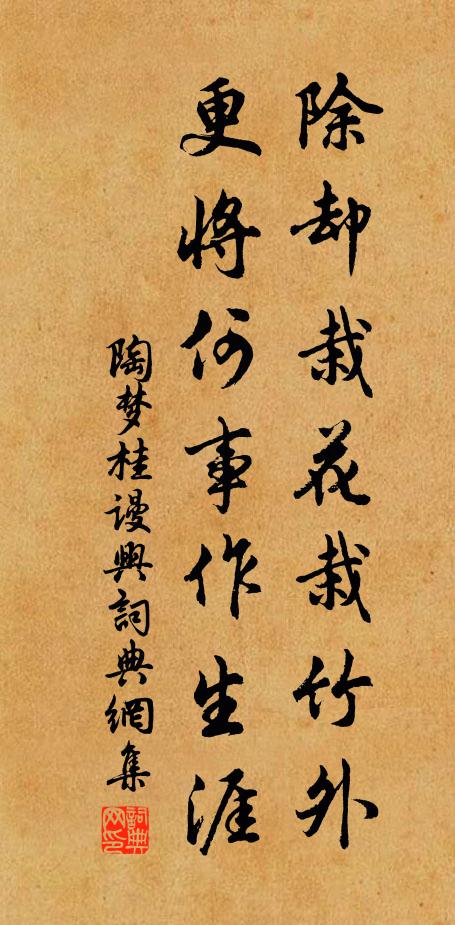 除却栽花栽竹外
更將何事作生涯
陶梦桂谩興詞典網集
詞典网印